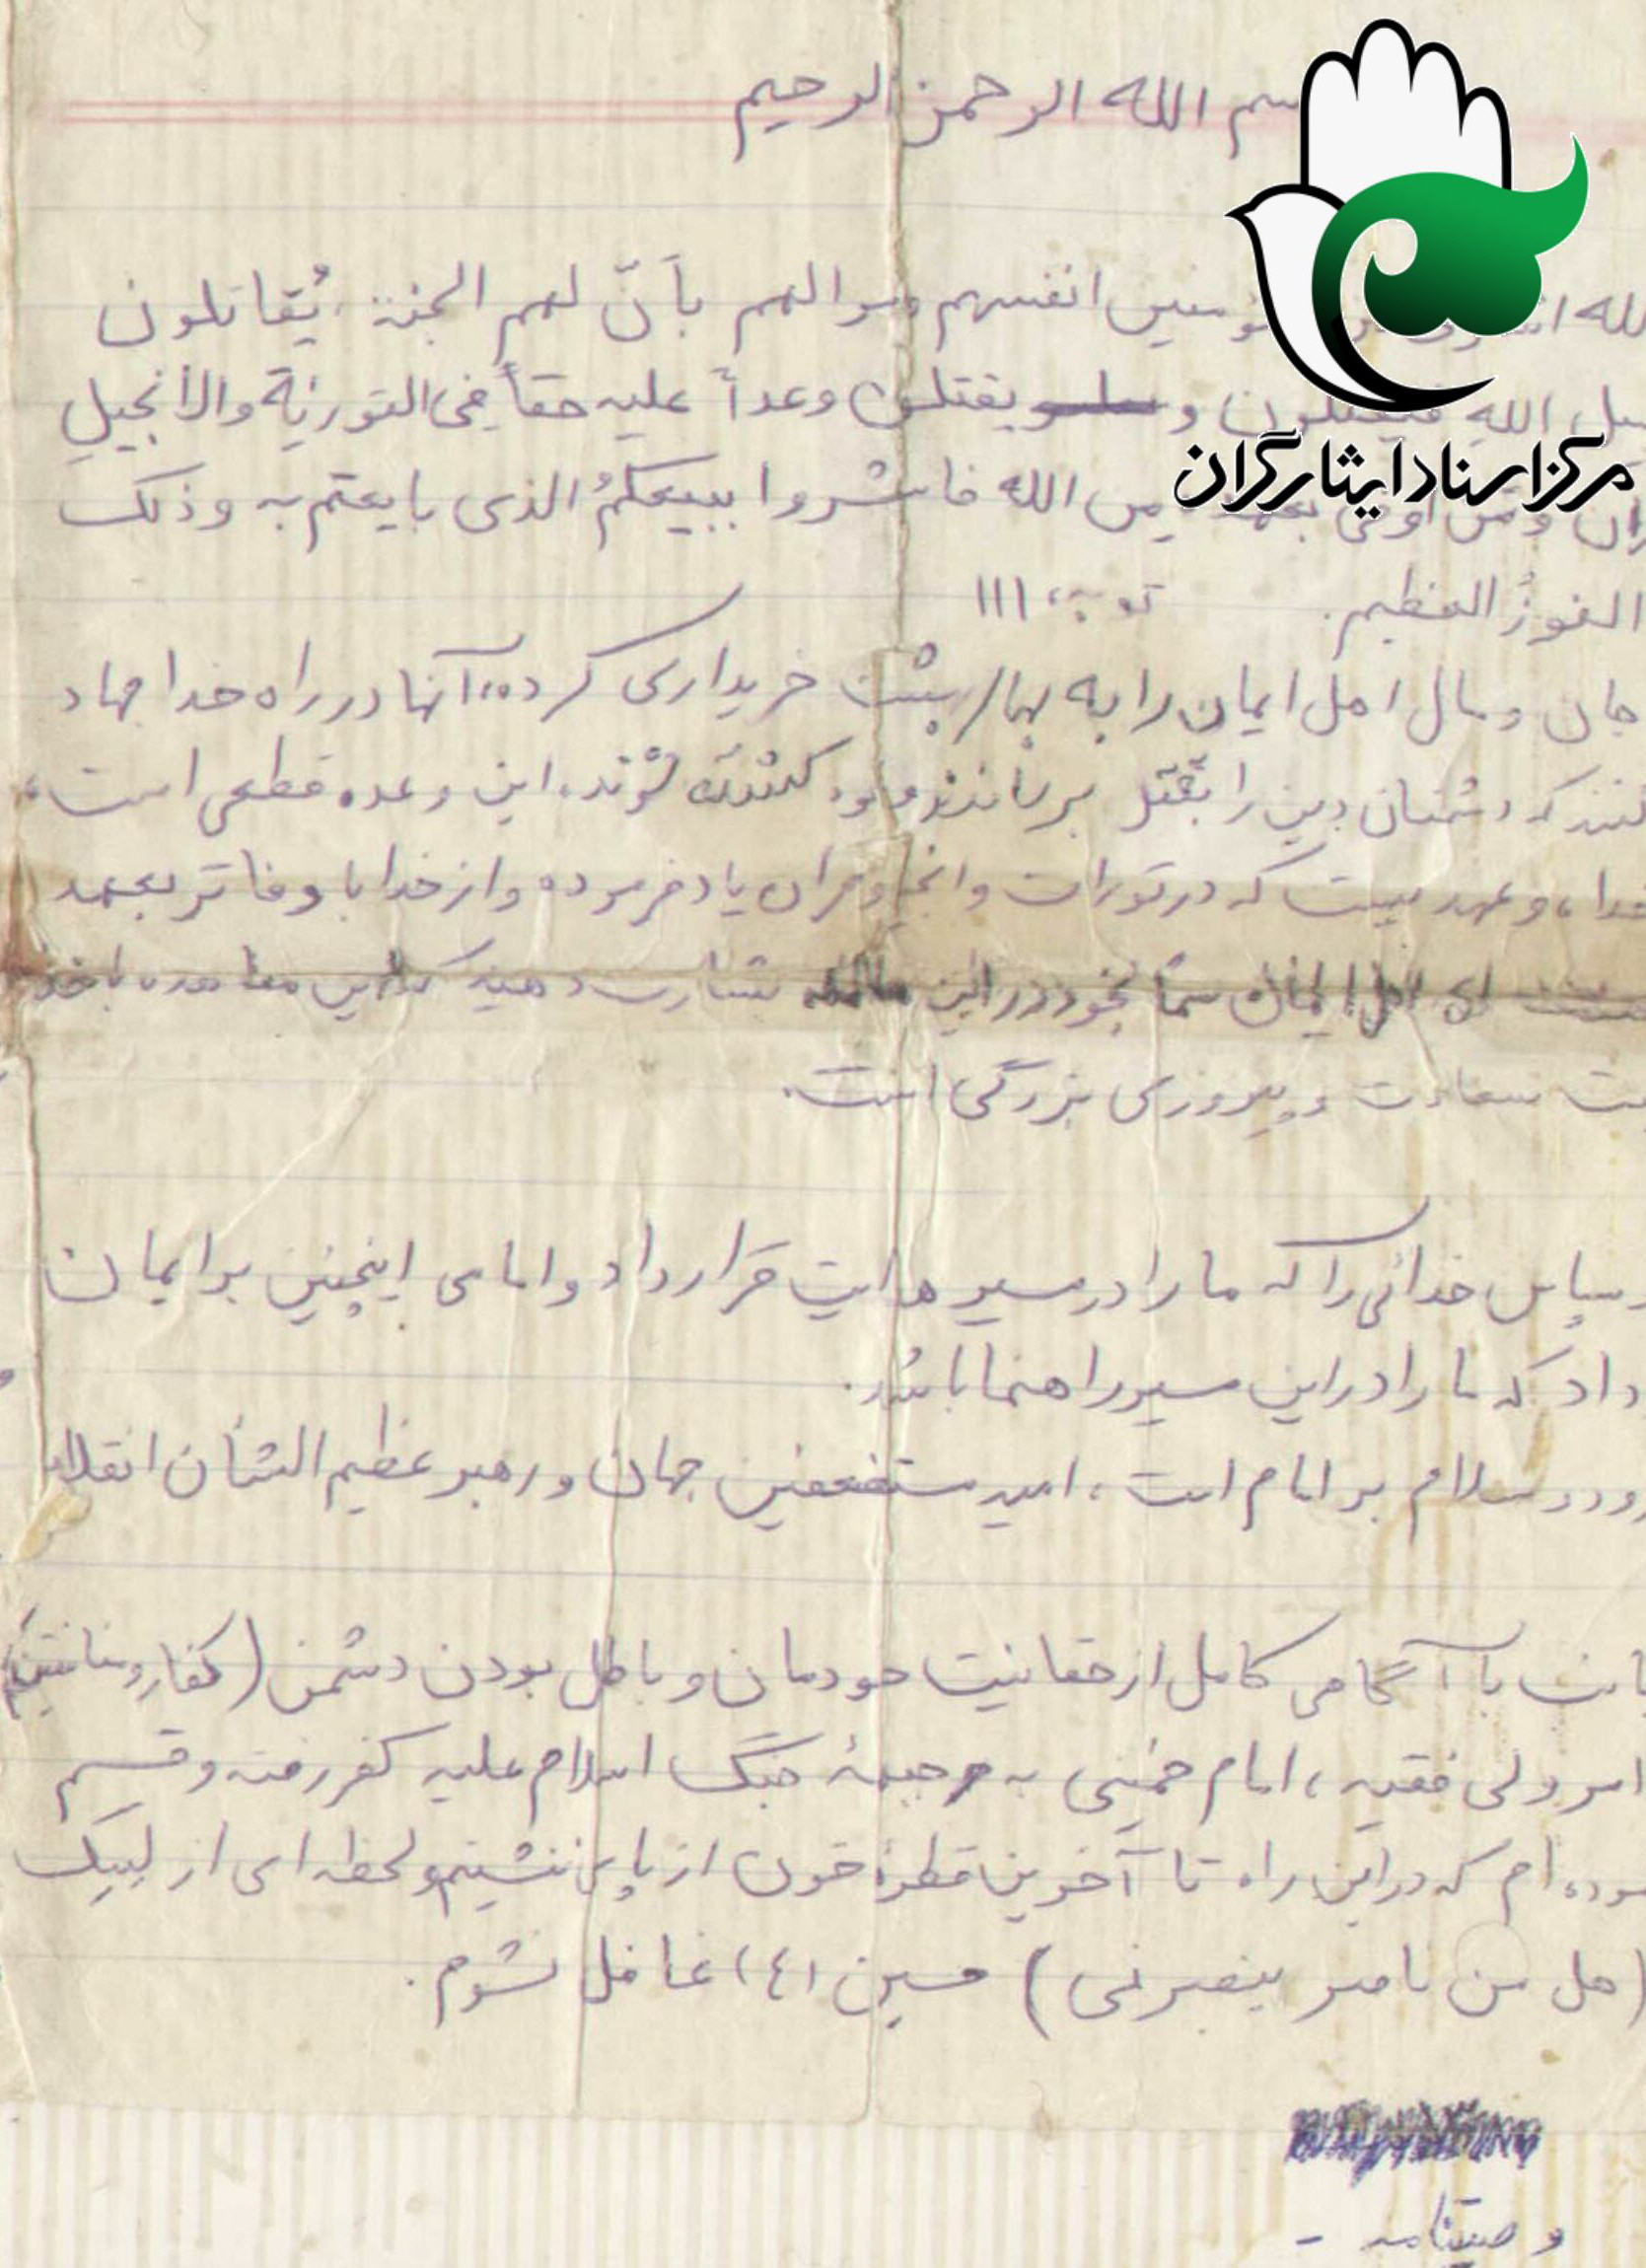 بسم الله الرحمن الرحیم
لله انفسهم و موالهم بأنّ لهم الجنة یُقاتلون
الله فیقتلون و یقتلون وعداً علیه حقاً فی التوریة والأنجیل
من الله فاستشروا ببیعکمُ الذی بایعتم به وذلک
مرکز اسناد ایثارگران
الفوزُ العظیم. توبه، ۱۱۱
جان و مال اهل ایمان را به بهای بهشت خریداری کرده، آنها در راه خدا جهاد
کنند که دشمنان دین را بقتل برسانند و خود کشته شوند. این وعده قطعی است
خدا، و عهدیست که در تورات و انجیل و قرآن یاد فرموده و از خدا با وفاتر بعهد
ای اهل ایمان شما بخود در این بشارت دهید که این معاهده با خدا
سعادت و پیروزی بزرگی است.
سپاس خدائی را که ما را در مسیر هدایت قرار داد و امامی اینچنین بر ایمان
داد که ما را در این مسیر راهنما باشد.
درود و سلام بر امام امت، امید مستضعفین جهان و رهبر عظیم الشأن انقلاب
با آگاهی کامل از حقانیت خودمان و باطل بودن دشمن (کفار و منافقین)
امر ولی فقیه، امام خمینی به جبهۀ جنگ اسلام علیه کفر رفته و قسم
ام که در این راه تا آخرین قطرۀ خون از پای ننشینم و لحظه ای از لبیک
(هل من ناصر ینصرنی) حسین (ع) غافل نشوم.
وصیتنامه -